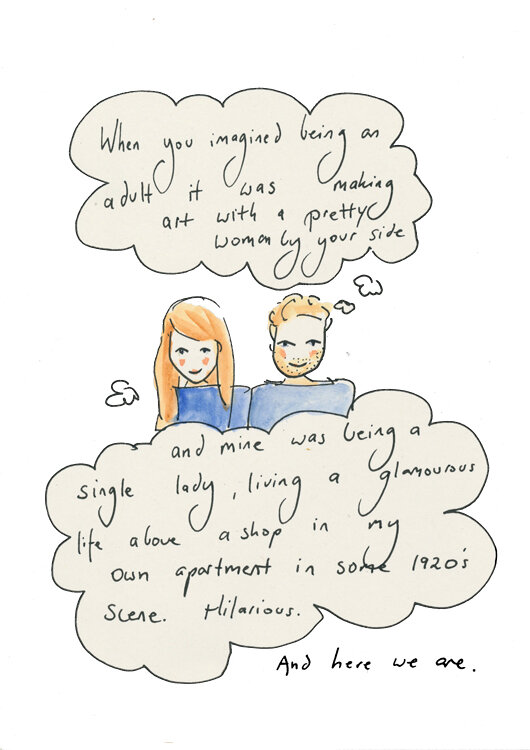 When you imagined being an
adult it was making
art with a pretty
woman by your side
and mine was being a
single lady, living a glamourous
life above a shop in my
own apartment in some 1920's
scene. Hilarious.
And here we are.